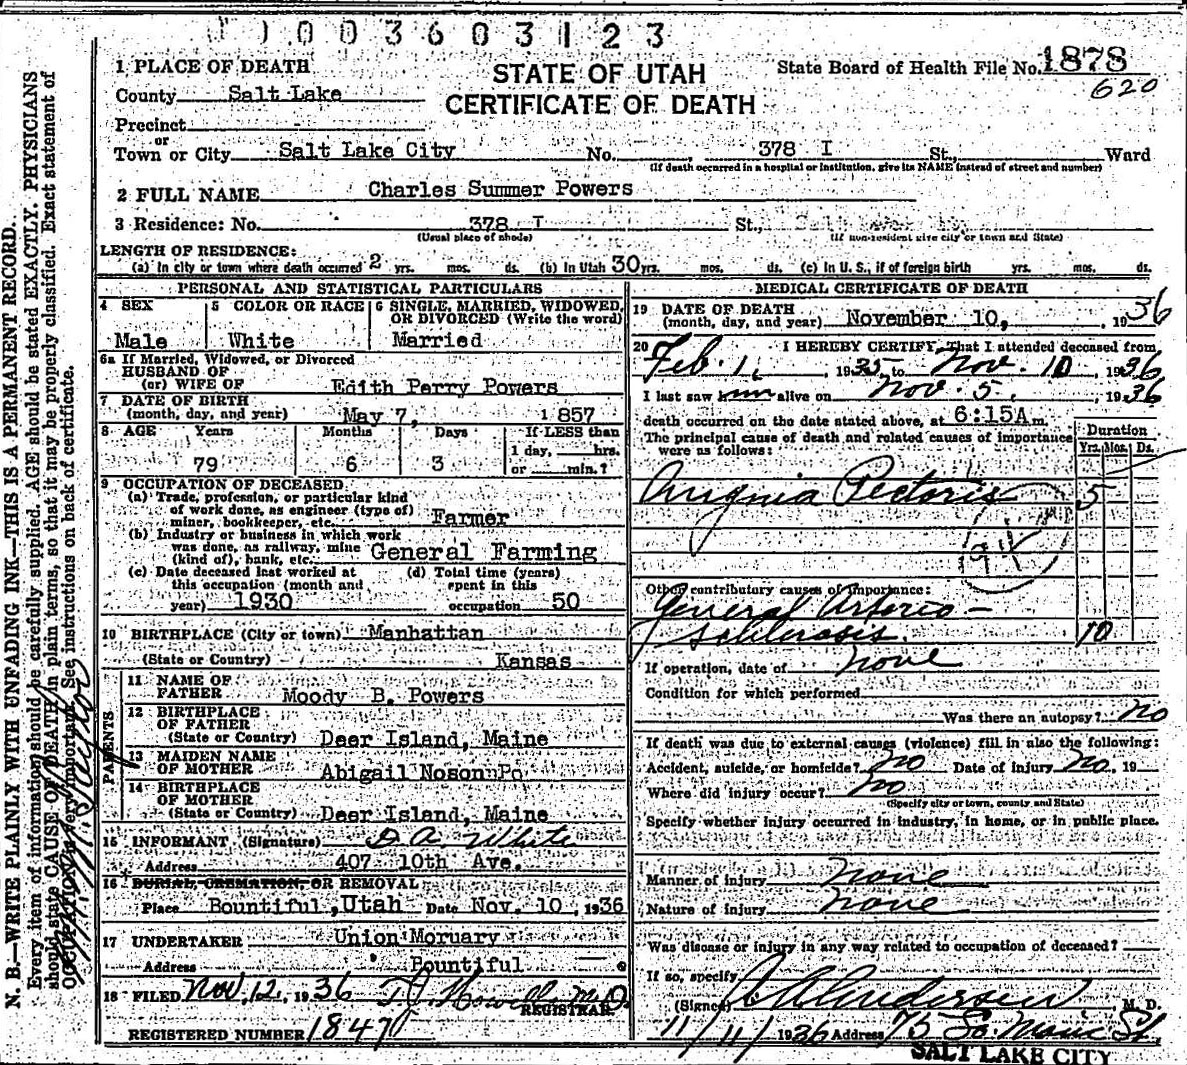 1003603123
1 PLACE OF DEATH
STATE OF UTAH
CERTIFICATE OF DEATH
State Board of Health File No. 1878
620
County Salt Lake
Precinct -
or
Town or City Salt Lake City No. , 378 I St., Ward
(If death occurred in a hospital or institution, give its NAME instead of street and number)
2 FULL NAME Charles Summer Powers
3 Residence: No. 378 I St.,
(Usual place of abode) (If non-resident give city or town and State)
LENGTH OF RESIDENCE:
(a) In city or town where death occurred 2 yrs. mos. ds. (b) In Utah 30 yrs. mos. ds. (c) In U. S., if of foreign birth yrs. mos. ds.
PERSONAL AND STATISTICAL PARTICULARS
4 SEX 5 COLOR OR RACE 6 SINGLE, MARRIED, WIDOWED, OR DIVORCED (Write the word)
Male White Married
6a If Married, Widowed, or Divorced
HUSBAND OF
(or) WIFE OF Edith Perry Powers
7 DATE OF BIRTH
(month, day, and year) May 7, 1857
8 AGE Years Months Days If LESS than
1 day, hrs.
79 6 3 or min.?
9 OCCUPATION OF DECEASED
(a) Trade, profession, or particular kind
of work done, as engineer (type of)
miner, bookkeeper, etc. Farmer
(b) Industry or business in which work
was done, as railway, mine
(kind of), bank, etc. General Farming
(c) Date deceased last worked at (d) Total time (years)
this occupation (month and spent in this
year) 1930 occupation 50
10 BIRTHPLACE (City or town) Manhattan
(State or Country) Kansas
PARENTS
11 NAME OF
FATHER Moody B. Powers
12 BIRTHPLACE
OF FATHER
(State or Country) Deer Island, Maine
13 MAIDEN NAME
OF MOTHER Abigail Noson Po
14 BIRTHPLACE
OF MOTHER
(State or Country) Deer Island, Maine
15 INFORMANT (Signature) D A White
Address 407 10th Ave.
16 BURIAL, CREMATION, OR REMOVAL
Place Bountiful, Utah Date Nov. 10, 1936
17 UNDERTAKER Union Moruary
Address Bountiful
18 FILED Nov. 12, 1936 T J Howells M.D.
REGISTRAR
REGISTERED NUMBER 1847
MEDICAL CERTIFICATE OF DEATH
19 DATE OF DEATH
(month, day, and year) November 10, , 1936
20 I HEREBY CERTIFY, That I attended deceased from
Feb. 1, 1935, to Nov. 10, 1936
I last saw him alive on Nov. 5, , 1936
death occurred on the date stated above, at 6:15A m.
The principal cause of death and related causes of importance
were as follows:
Duration
Yrs. Mos. Ds.
Anignia Pectoris 5
94
Other contributory causes of importance:
General Arterio-
sclerosis. 10
If operation, date of none
Condition for which performed
Was there an autopsy? no
If death was due to external causes (violence) fill in also the following:
Accident, suicide, or homicide? no Date of injury no, 19
Where did injury occur? no
(Specify city or town, county and State)
Specify whether injury occurred in industry, in home, or in public place.
Manner of injury none
Nature of injury none
Was disease or injury in any way related to occupation of deceased?
If so, specify
(Signed) Andersen, M. D.
11/11/1936 Address 75 So. Main St.
SALT LAKE CITY
N. B.—WRITE PLAINLY WITH UNFADING INK—THIS IS A PERMANENT RECORD.
Every item of information should be carefully supplied. AGE should be stated EXACTLY. PHYSICIANS
should state CAUSE OF DEATH in plain terms, so that it may be properly classified. Exact statement of
OCCUPATION is very important. See instructions on back of certificate.